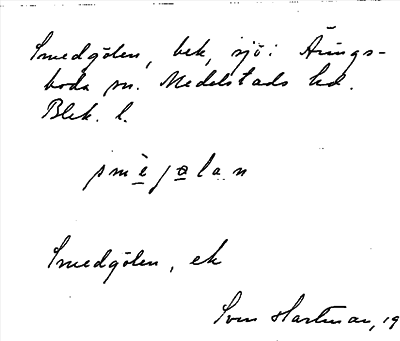 Smedgölen, bek, sjö i Äŭngs-
boda sn. Medelstads hd.
Blek. l.
smèjələn
Smedgölen, ek
Sven Hartman, 19